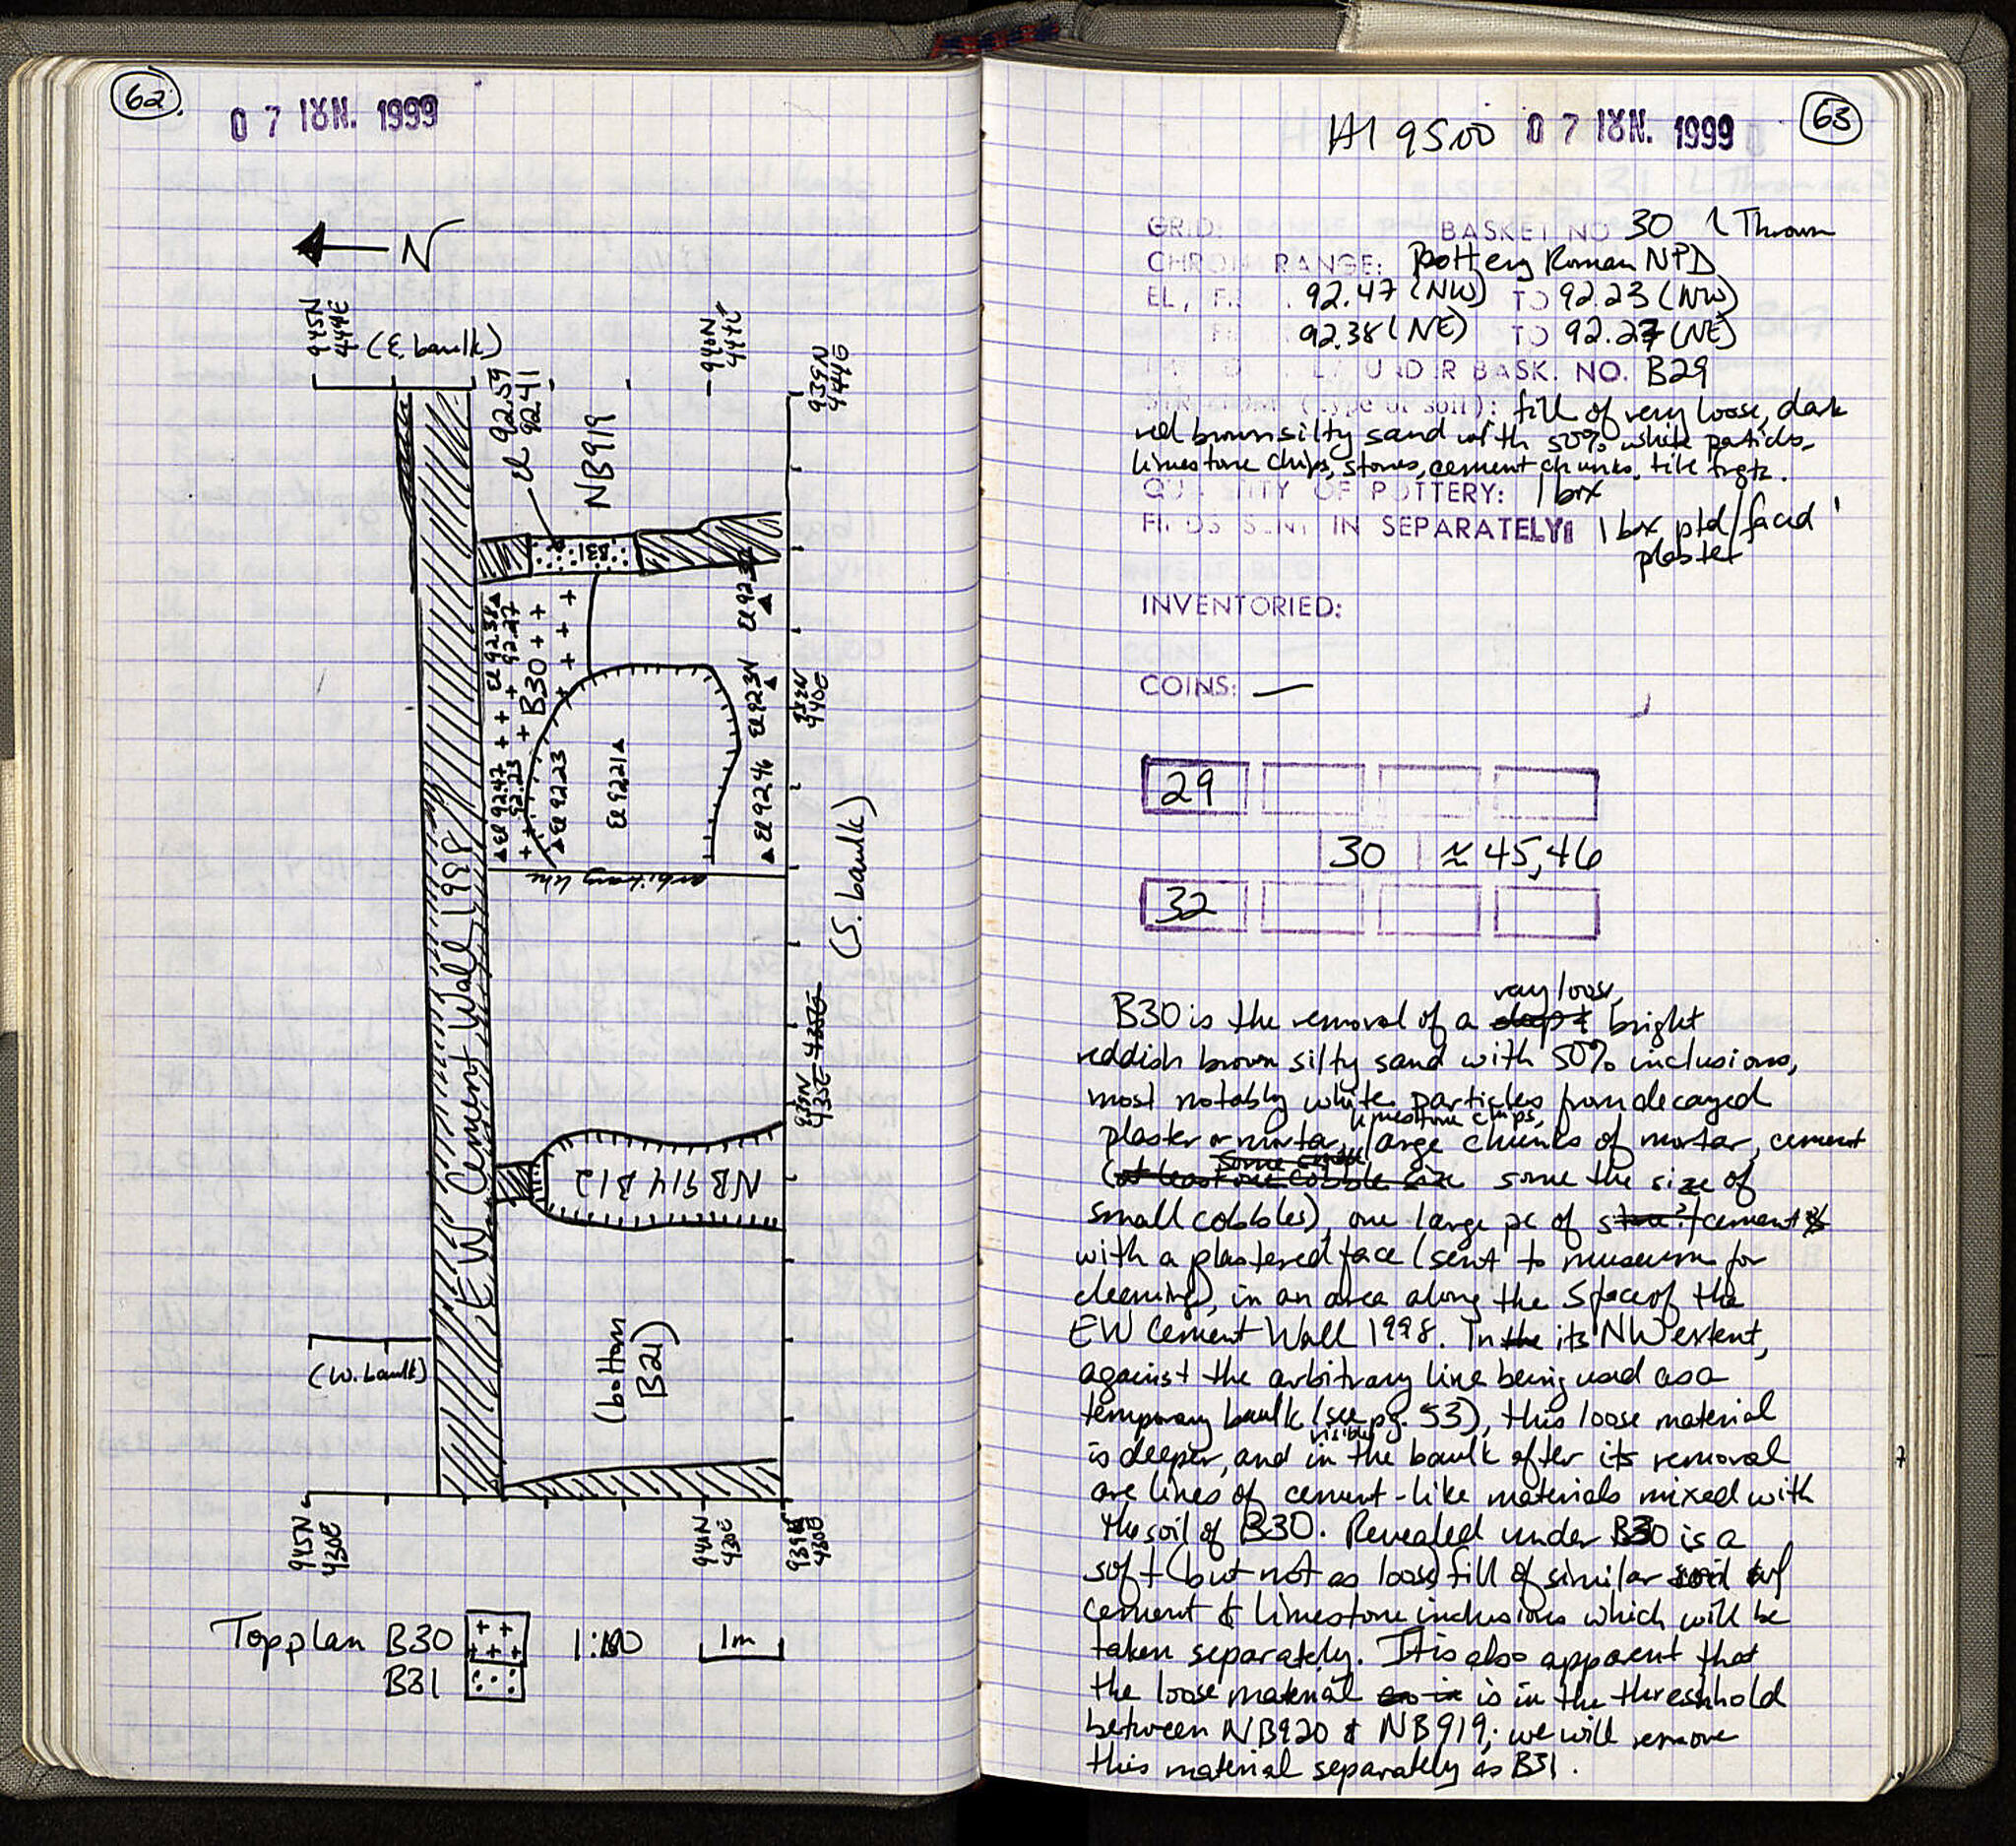 62.
07 ΙΟΥΝ. 1999
N
945N
444E
(E. baulk)
940N
444E
939N
444E
el 92.59
92.41
NB919
B31
El 92.38
92.27
B30
El 92.47
92.23
El 92.23
El 92.21
El 92.46
440E
arbitrary line
(S. baulk)
EW Cement Wall 1998
939N
435E
NB914 B12
(bottom
B21)
(W. baulk)
945N
430E
940N
430E
939N
430E
Topplan B30 1:100 1m
B31
HA 95.00 07 ΙΟΥΝ. 1999
63
GRID: BASKET NO 30 Thrown
CHRON RANGE: Pottery Roman NPD
EL, 92.47 (NW) TO 92.23 (NW)
92.38 (NE) TO 92.27 (NE)
UNDER BASK. NO. B29
(type of soil): fill of very loose, dark
red brown silty sand with 50% white particles,
limestone chips, stones, cement chunks, tile frgts.
QUANTITY OF POTTERY: 1 box
FINDS SENT IN SEPARATELY: 1 box ptd/faced
plaster
INVENTORIED:
COINS: —
29
30 ≈ 45,46
32
very loose,
B30 is the removal of a deep & bright
reddish brown silty sand with 50% inclusions,
most notably white particles from decayed
limestone chips,
plaster or mortar, large chunks of mortar, cement
some
(at least one cobble size some the size of
small cobbles), one large pc of stone?/cement
with a plastered face (sent to museum for
cleaning), in an area along the S face of the
EW Cement Wall 1998. In the its NW extent,
against the arbitrary line being used as a
temporary baulk (see pg. 53), this loose material
visible
is deeper, and in the baulk after its removal
are lines of cement-like materials mixed with
the soil of B30. Revealed under B30 is a
soft (but not as loose) fill of similar soil w/
cement & limestone inclusions which will be
taken separately. It is also apparent that
the loose material is in the threshhold
between NB920 & NB919; we will remove
this material separately as B31.